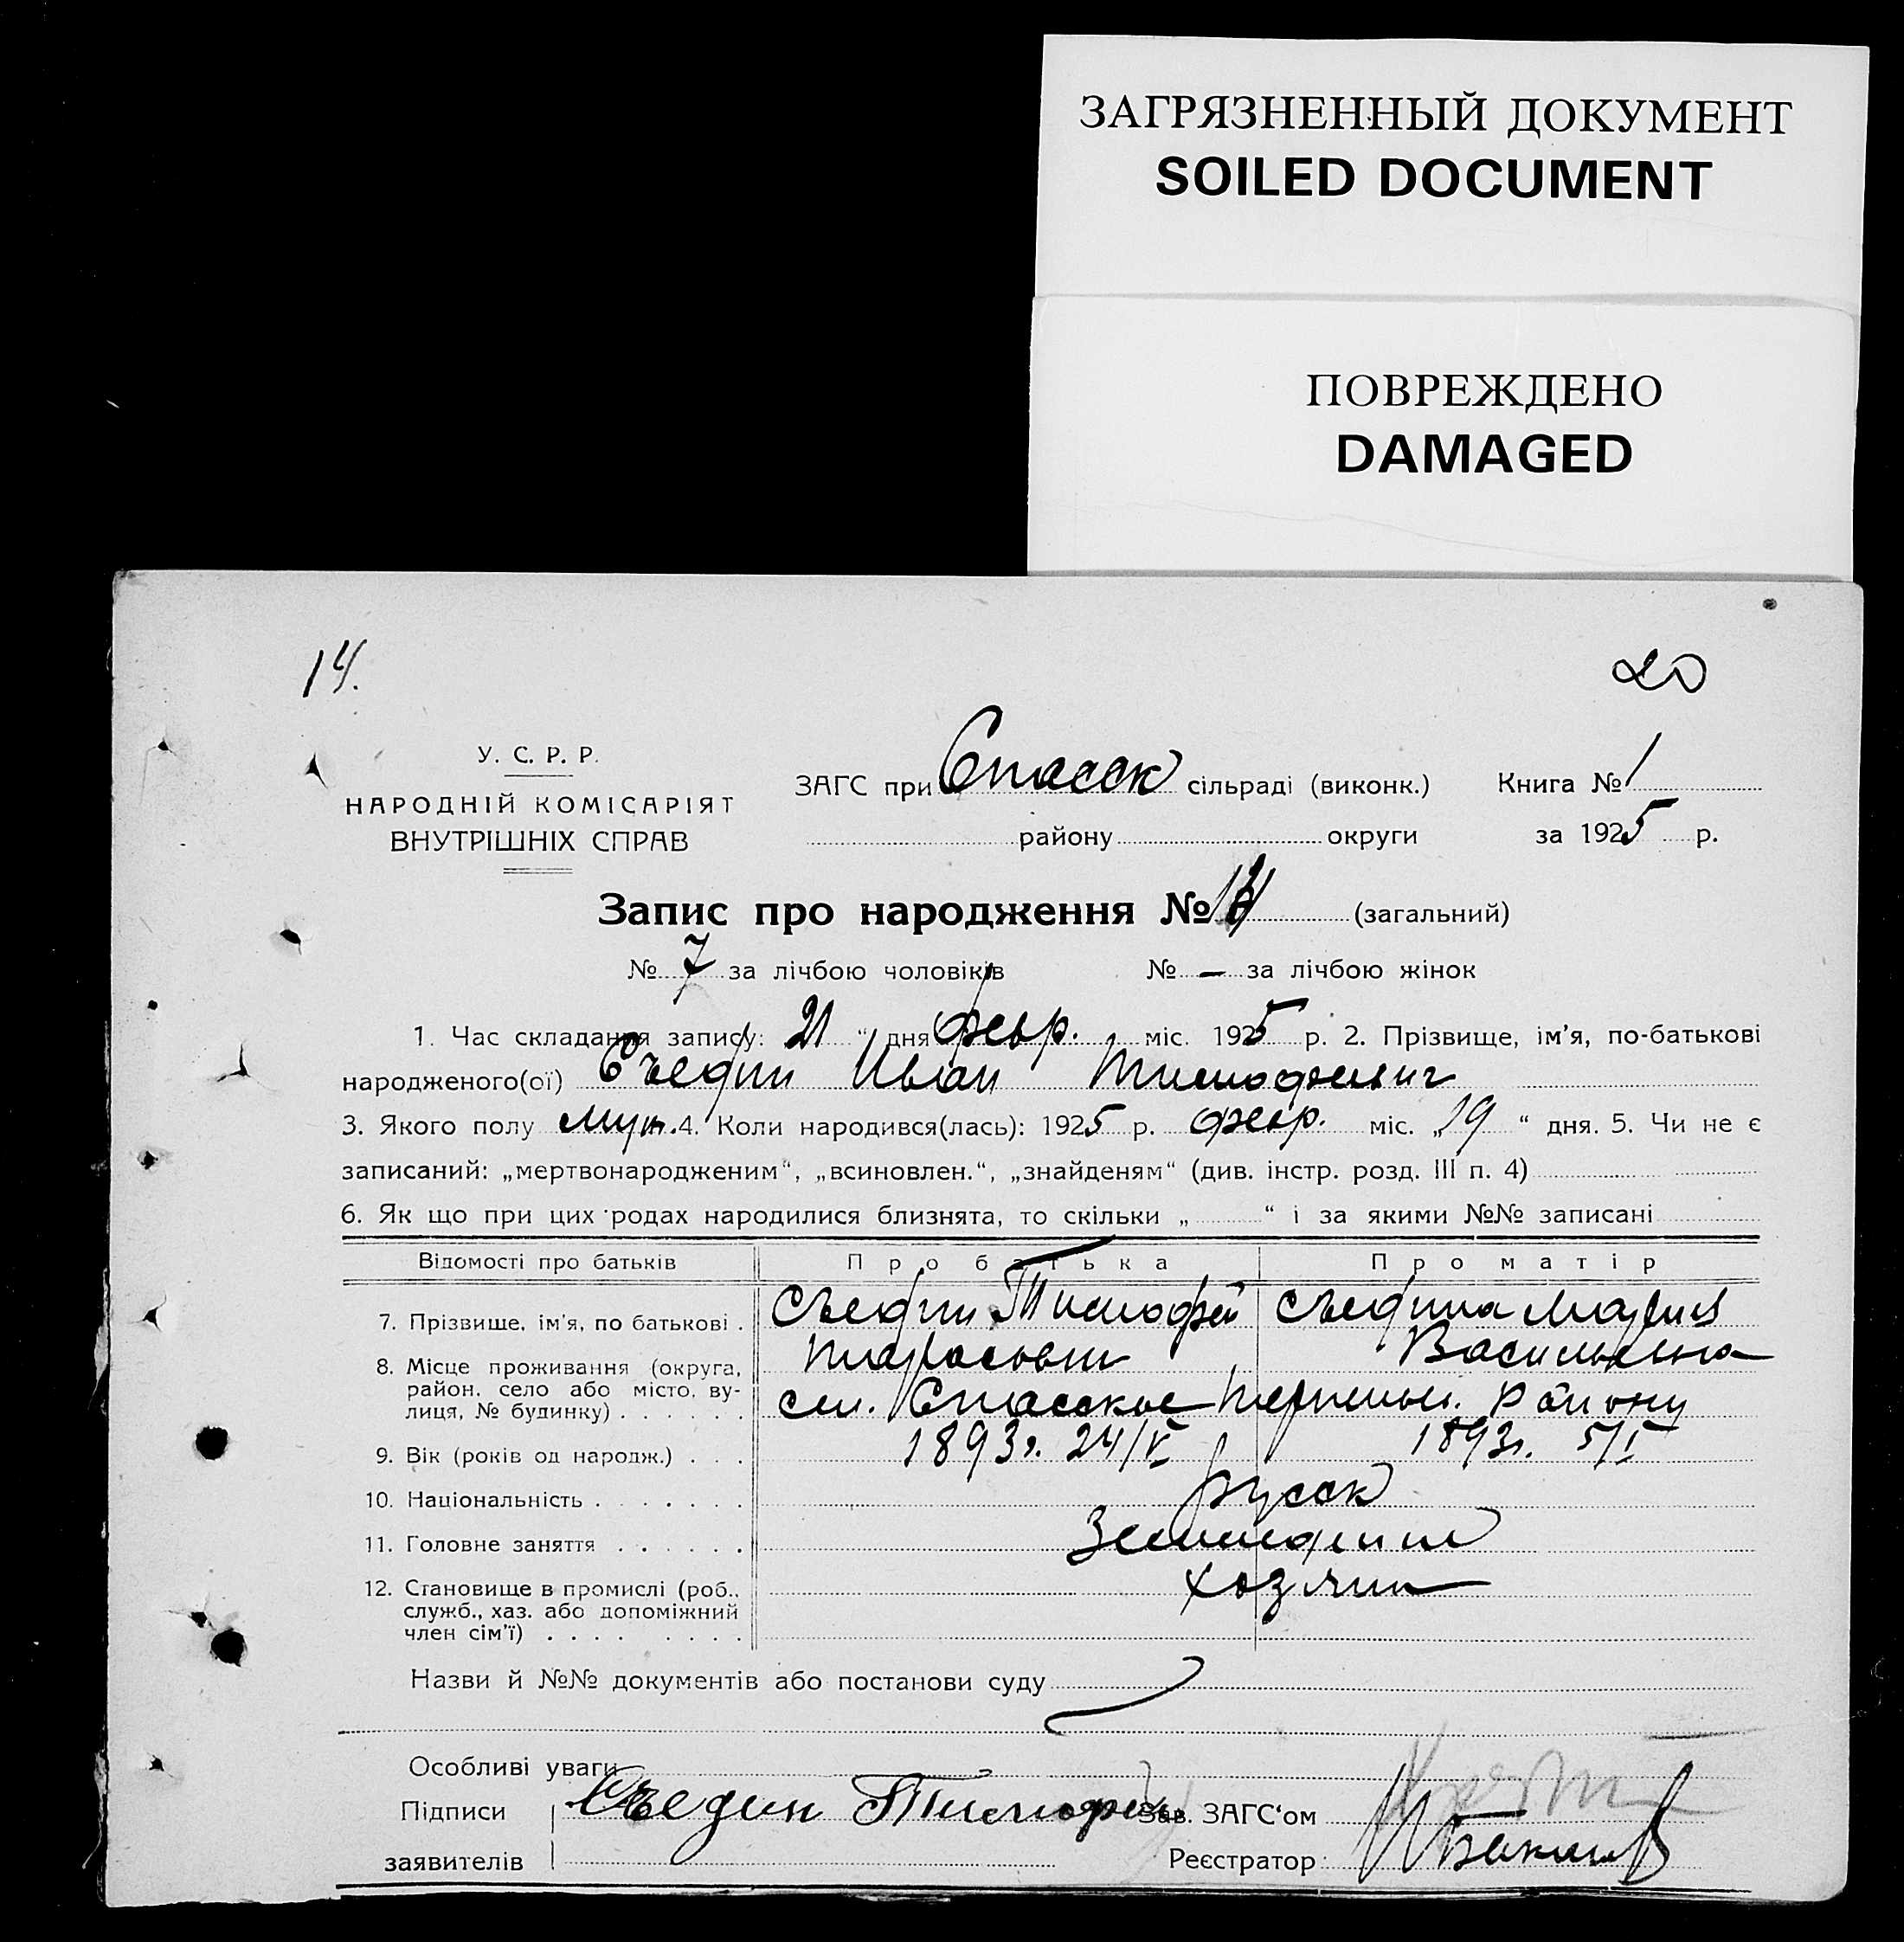 ЗАГРЯЗНЕННЫЙ ДОКУМЕНТ
SOILED DOCUMENT
ПОВРЕЖДЕНО
DAMAGED
14.
20
У. С. Р. Р.
НАРОДНІЙ КОМІСАРІЯТ
ВНУТРІШНІХ СПРАВ
ЗАГС при Спасск сільраді (виконк.) Книга № 1
району округи за 1925 р.
Запис про народження № 14 (загальний)
№ 7 за лічбою чоловіків № — за лічбою жінок
1. Час складання запису: 21 “ дня февр. міс. 1925 р. 2. Прізвище, ім’я, по-батькові
народженого(ої) Съедин Иван Тимофеевич
3. Якого полу муж. 4. Коли народився(лась): 1925 р. февр. міс. „19“ дня. 5. Чи не є
записаний: „мертвонародженим“, „всиновлен.“, „знайденям“ (див. інстр. розд. III п. 4)
6. Як що при цих родах народилися близнята, то скільки „ “ і за якими №№ записані
Відомості про батьків Про батька Про матір
7. Прізвище, ім’я, по батькові . Съедин Тимофей Съедина Мария
Тарасович Васильевна
8. Місце проживання (округа, район, село або місто, вулиця, № будинку) . . . . . . сел. Спасское Терпеньев. району
9. Вік (років од народж.) . . . 1893г. 24/V 1893г. 5/I
10. Національність . . . . . . . русск
11. Головне заняття . . . . . .
12. Становище в промислі (роб., хозяин
служб., хаз. або допоміжний
член сім’ї) . . . . . . . .
Назви й №№ документів або постанови суду
Особливі уваги
Підписи Съедин Тимофей Зав. ЗАГС‘ом
заявителів Реєстратор